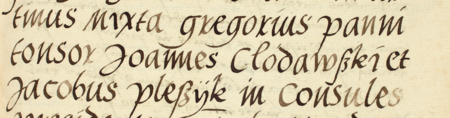 tinus Mixta gregorius panni
tonsor Joannes Clodawßki et
Jacobus pleßyk in Consules